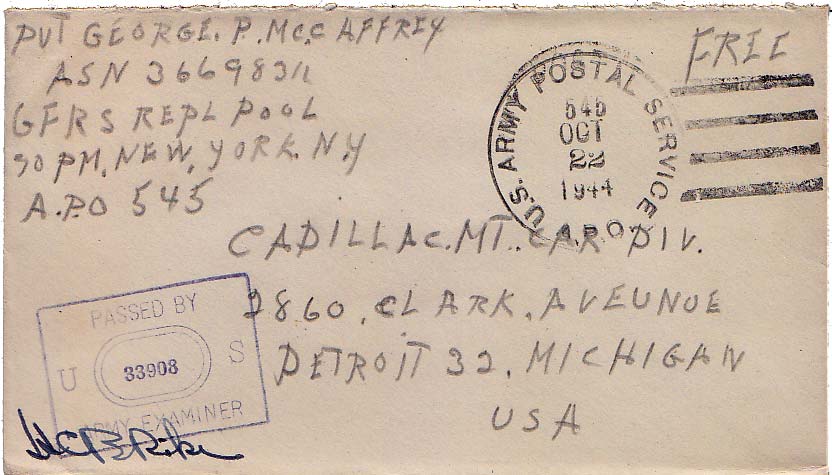 PVT GEORGE. P. MCCAFFREY
ASN 36698311
GFRS REPL POOL
%PM, NEW, YORK. N.Y
A.P.O 545
FREE
U.S. ARMY POSTAL SERVICE
A.P.O.
545
OCT
22
1944
CADILLAC. MT. CAR DIV.
2860, CLARK, AVEUNUE
DETROIT 32, MICHIGAN
USA
PASSED BY
U 33908 S
ARMY EXAMINER